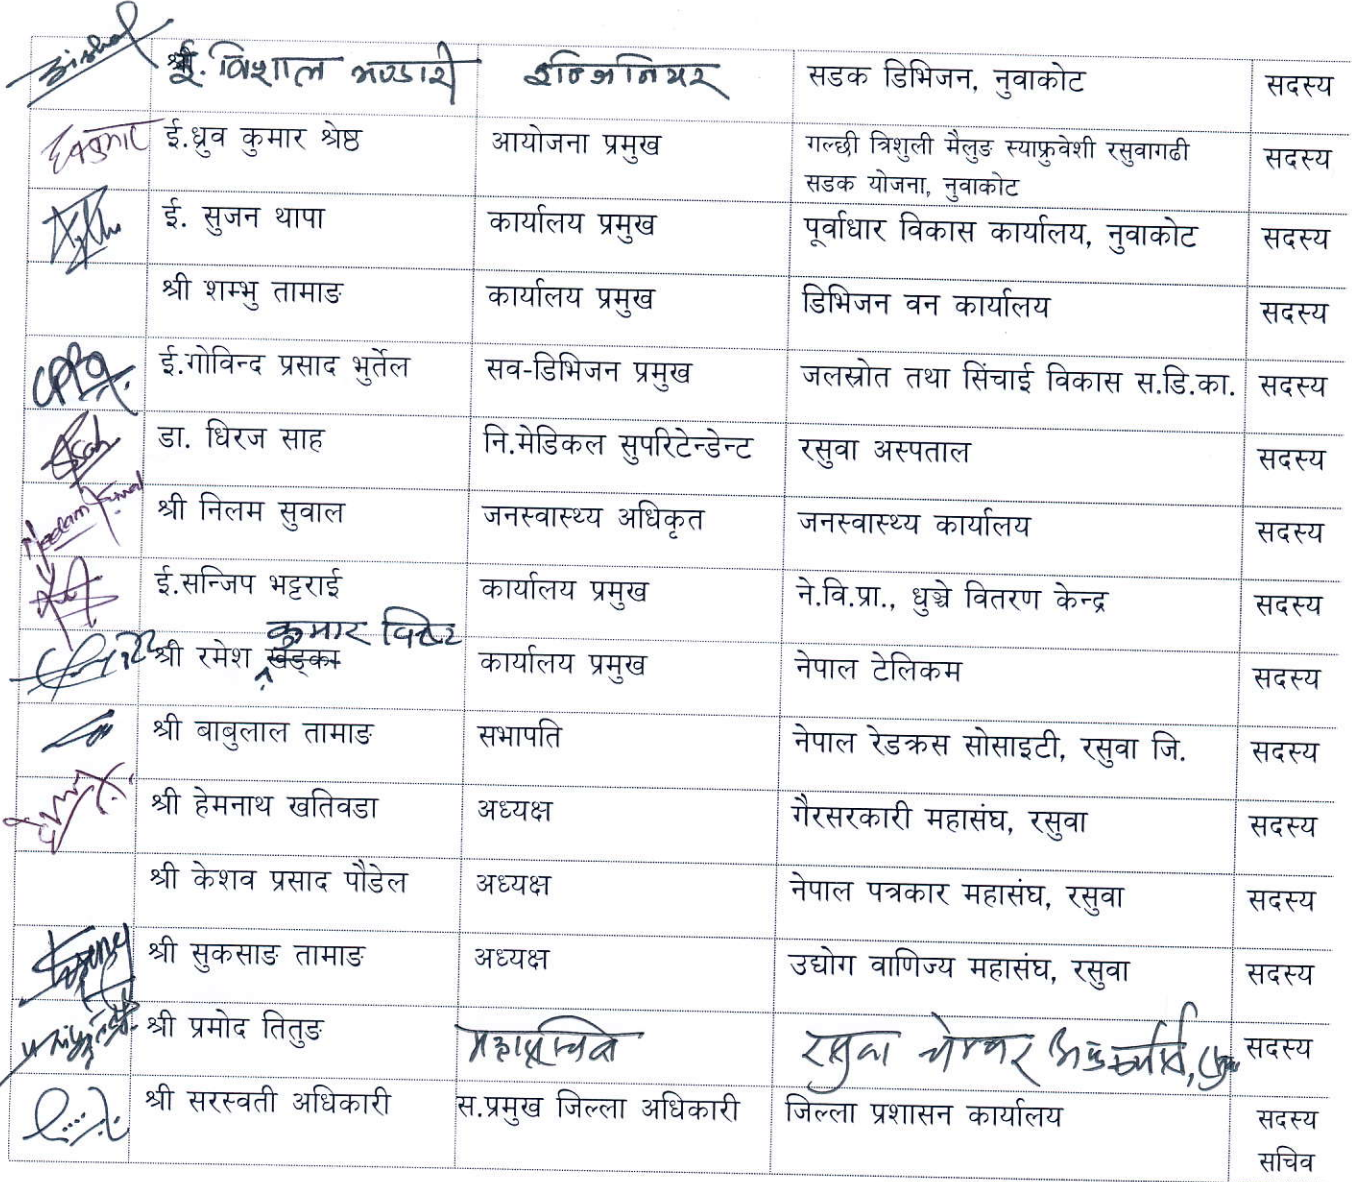 ई. विशाल भण्डारी इन्जिनियर सडक डिभिजन, नुवाकोट सदस्य
ई.ध्रुव कुमार श्रेष्ठ आयोजना प्रमुख गल्छी त्रिशुली मैलुङ स्याफ्रुवेशी रसुवागढी सदस्य
सडक योजना, नुवाकोट
ई. सुजन थापा कार्यालय प्रमुख पूर्वाधार विकास कार्यालय, नुवाकोट सदस्य
श्री शम्भु तामाङ कार्यालय प्रमुख डिभिजन वन कार्यालय सदस्य
ई.गोविन्द प्रसाद भुर्तेल सव-डिभिजन प्रमुख जलस्रोत तथा सिंचाई विकास स.डि.का. सदस्य
डा. धिरज साह नि.मेडिकल सुपरिटेन्डेन्ट रसुवा अस्पताल सदस्य
श्री निलम सुवाल जनस्वास्थ्य अधिकृत जनस्वास्थ्य कार्यालय सदस्य
ई.सन्जिप भट्टराई कार्यालय प्रमुख ने.वि.प्रा., धुन्चे वितरण केन्द्र सदस्य
कुमार विष्ट
श्री रमेश खड्का कार्यालय प्रमुख नेपाल टेलिकम सदस्य
श्री बाबुलाल तामाङ सभापति नेपाल रेडक्रस सोसाइटी, रसुवा जि. सदस्य
श्री हेमनाथ खतिवडा अध्यक्ष गैरसरकारी महासंघ, रसुवा सदस्य
श्री केशव प्रसाद पौडेल अध्यक्ष नेपाल पत्रकार महासंघ, रसुवा सदस्य
श्री सुकसाङ तामाङ अध्यक्ष उद्योग वाणिज्य महासंघ, रसुवा सदस्य
श्री प्रमोद तितुङ महासचिव रसुवा चेम्बर अफ कमर्स, सदस्य
श्री सरस्वती अधिकारी स.प्रमुख जिल्ला अधिकारी जिल्ला प्रशासन कार्यालय सदस्य
सचिव